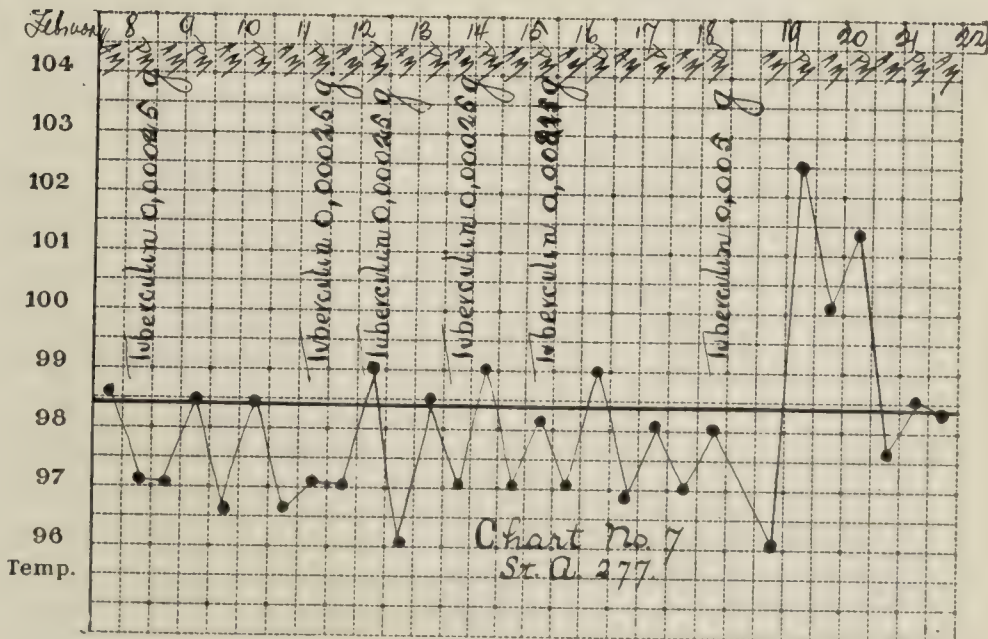 February 8 9 10 11 12 13 14 15 16 17 18 19 20 21 22
104
103
102
101
100
99
98
97
96
Temp.
Tuberculin 0,00025 g
Tuberculin 0,00025 g.
Tuberculin 0,00025 g
Tuberculin 0,00025 g
Tuberculin g.
Tuberculin 0,005 g
Chart No. 7
Sr. A. 277.